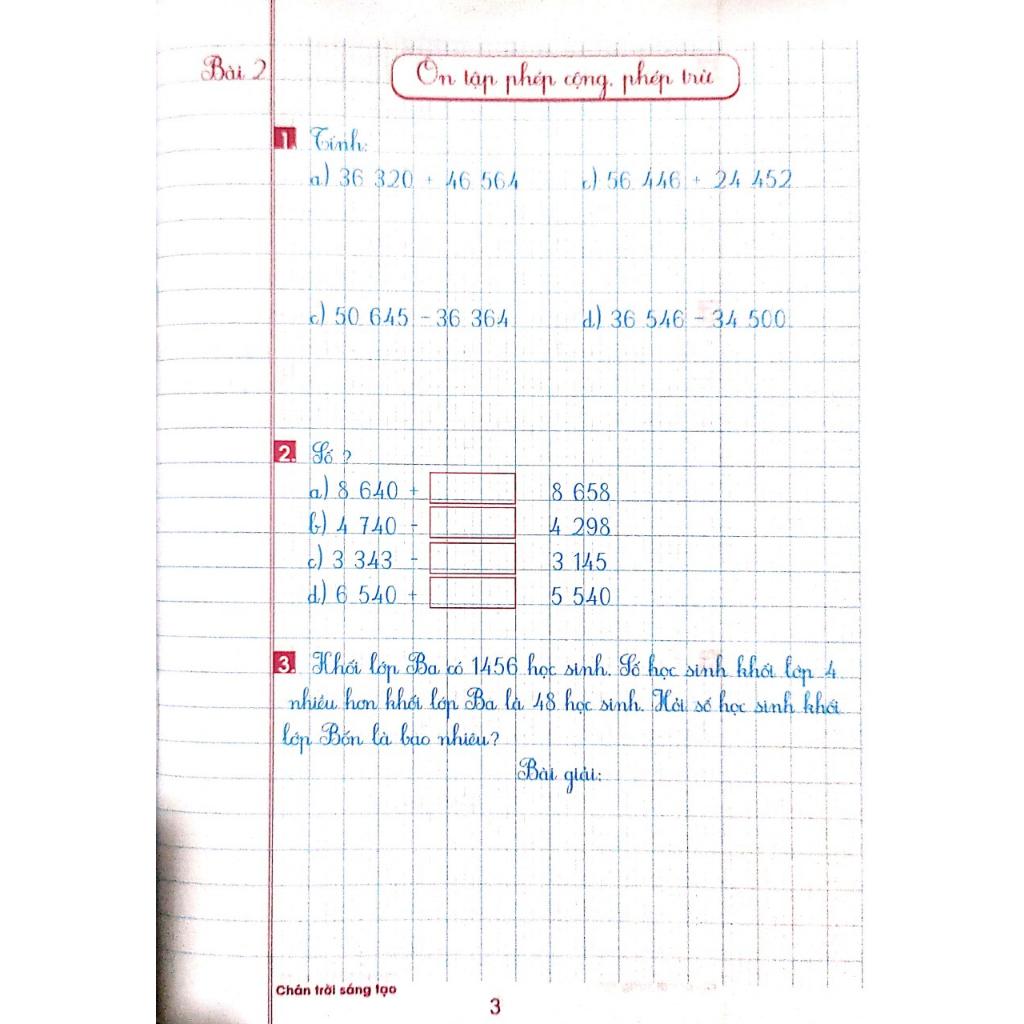 Bài 2
Ôn tập phép cộng, phép trừ
1. Tính:
a) 36 320 + 46 564 c) 56 446 + 24 452
c) 50 645 - 36 364 d) 36 546 - 34 500
2. Số ?
a) 8 640 + 8 658
b) 4 740 - 4 298
c) 3 343 - 3 145
d) 6 540 + 5 540
3. Khối lớp Ba có 1456 học sinh. Số học sinh khối lớp 4
nhiều hơn khối lớp Ba là 48 học sinh. Hỏi số học sinh khối
lớp Bốn là bao nhiêu?
Bài giải:
Chân trời sáng tạo
3